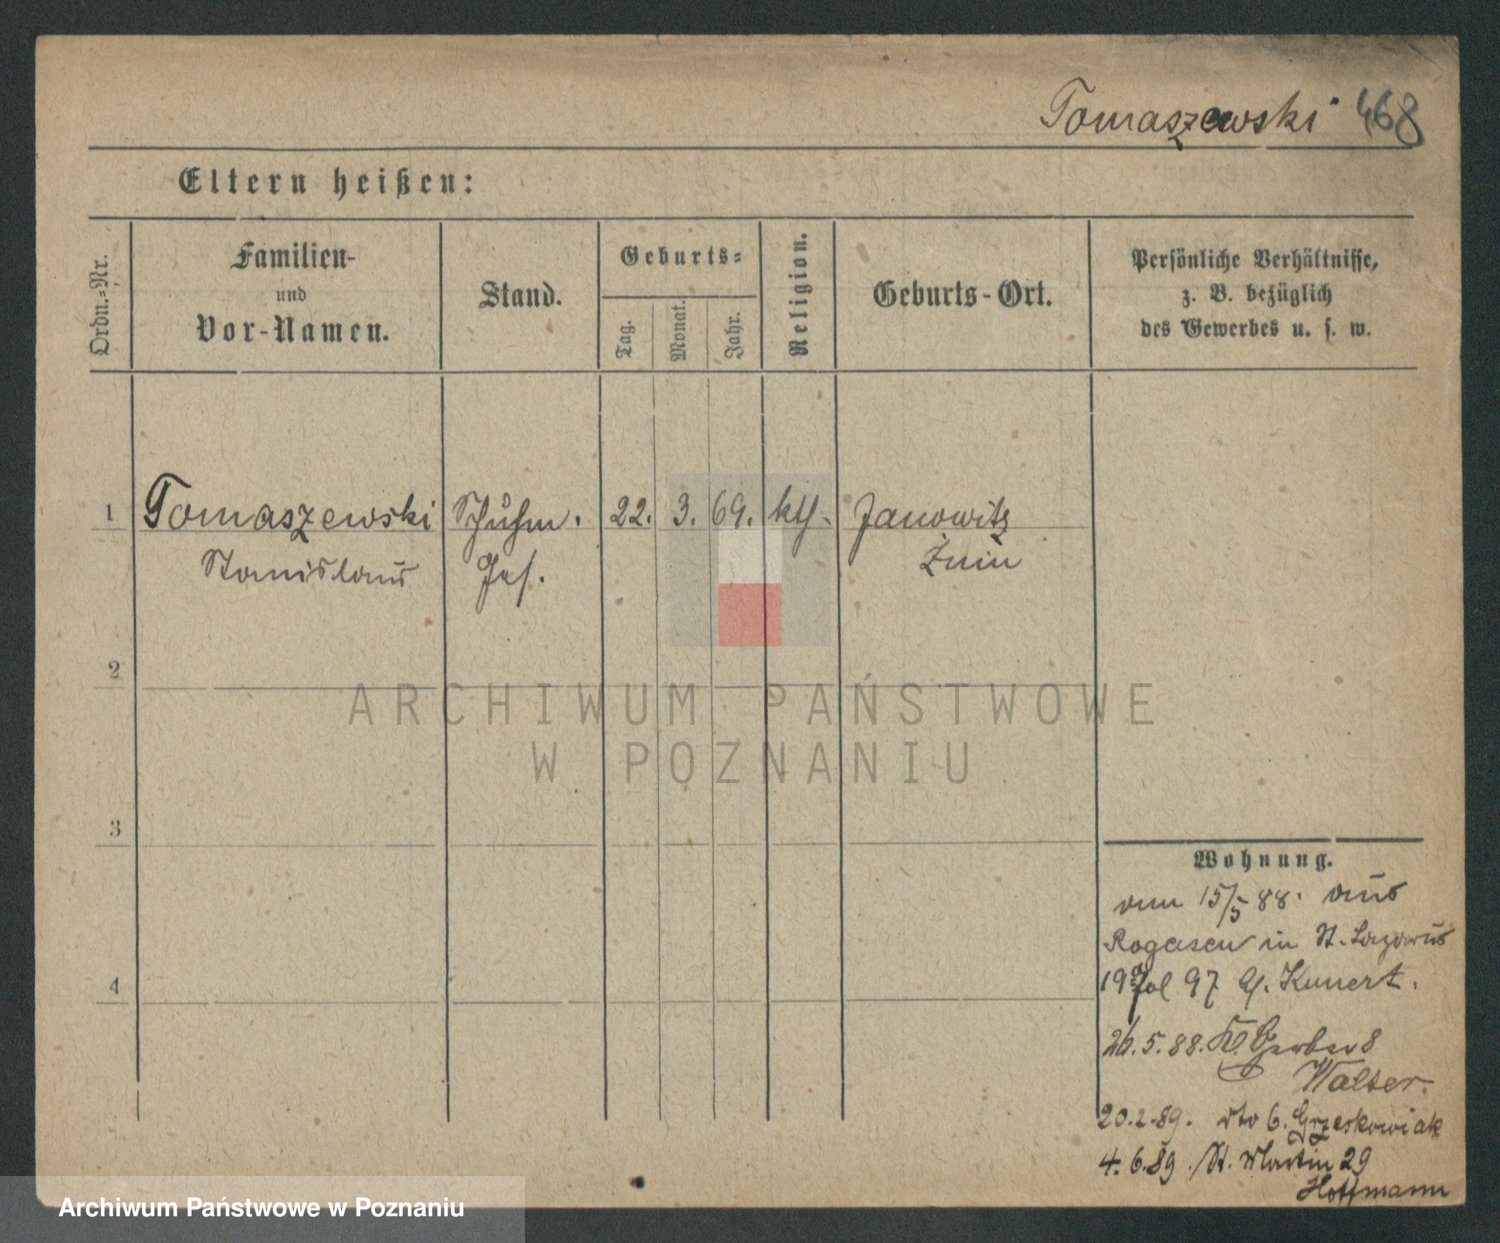 Tomaszewski 468
Eltern heißen:
Ordn.-Nr.
Familien-
und
Vor-Namen.
Stand.
Geburts-
Tag.
Monat.
Jahr.
Religion.
Geburts-Ort.
Persönliche Verhältnisse,
z. B. bezüglich
des Gewerbes u. s. w.
1 Tomaszewski Schuhm. 22. 3. 69. kth. Janowitz
Stanislaus Ges. Żnin
2
ARCHIWUM PAŃSTWOWE
W POZNANIU
3
4
Wohnung.
am 15/5 88. aus
Rogasen in St. Lazarus
97 Kunert.
26. 5. 88. Gerber 8
Walter.
20.2.89. dto 6. Grzeskowiak
4. 6. 89. St. Martin 29
Hoffmann
Archiwum Państwowe w Poznaniu